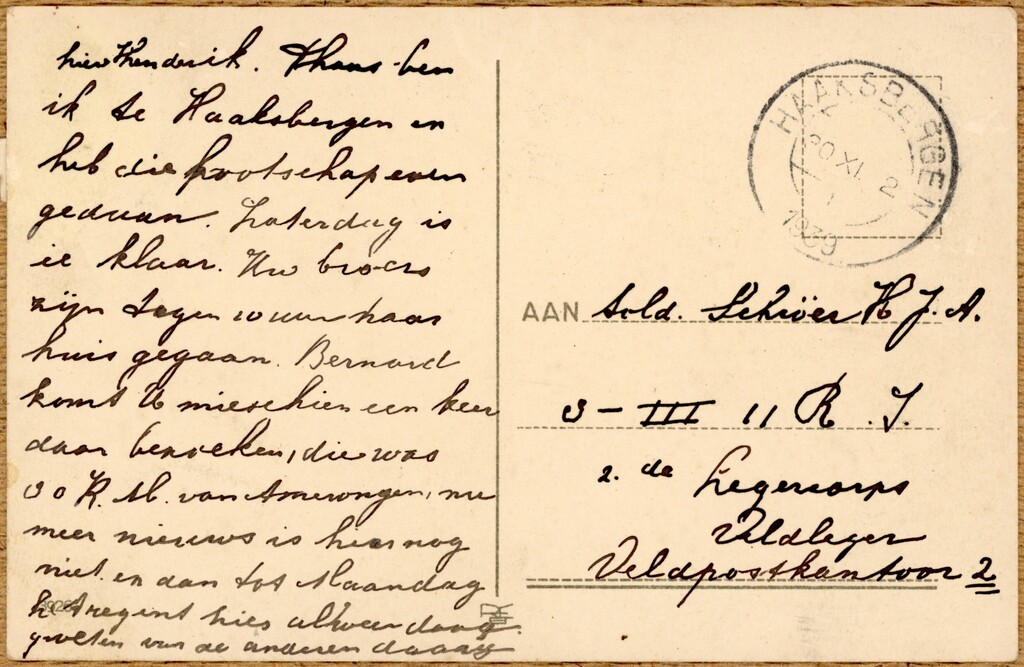 hier Henderik. Thans ben
ik te Haaksbergen en
heb die bootschap even
gedaan. Zaterdag is
ie klaar. Uw broers
zijn tegen 10 uur naar
huis gegaan. Bernard
komt U mieschien een keer
daar bezoeken, die was
30 K.M. van Amerongen,
meer nieuws is hier nog
niet. en dan tot Maandag
het regent hier alweer
groeten van de anderen
HAAKSBERGEN
30 XI 2
1939
AAN Sold. Schröer H J. A.
3 - III 11 R. I.
2.de Legercorps
Veldleger
Veldpostkantoor 2